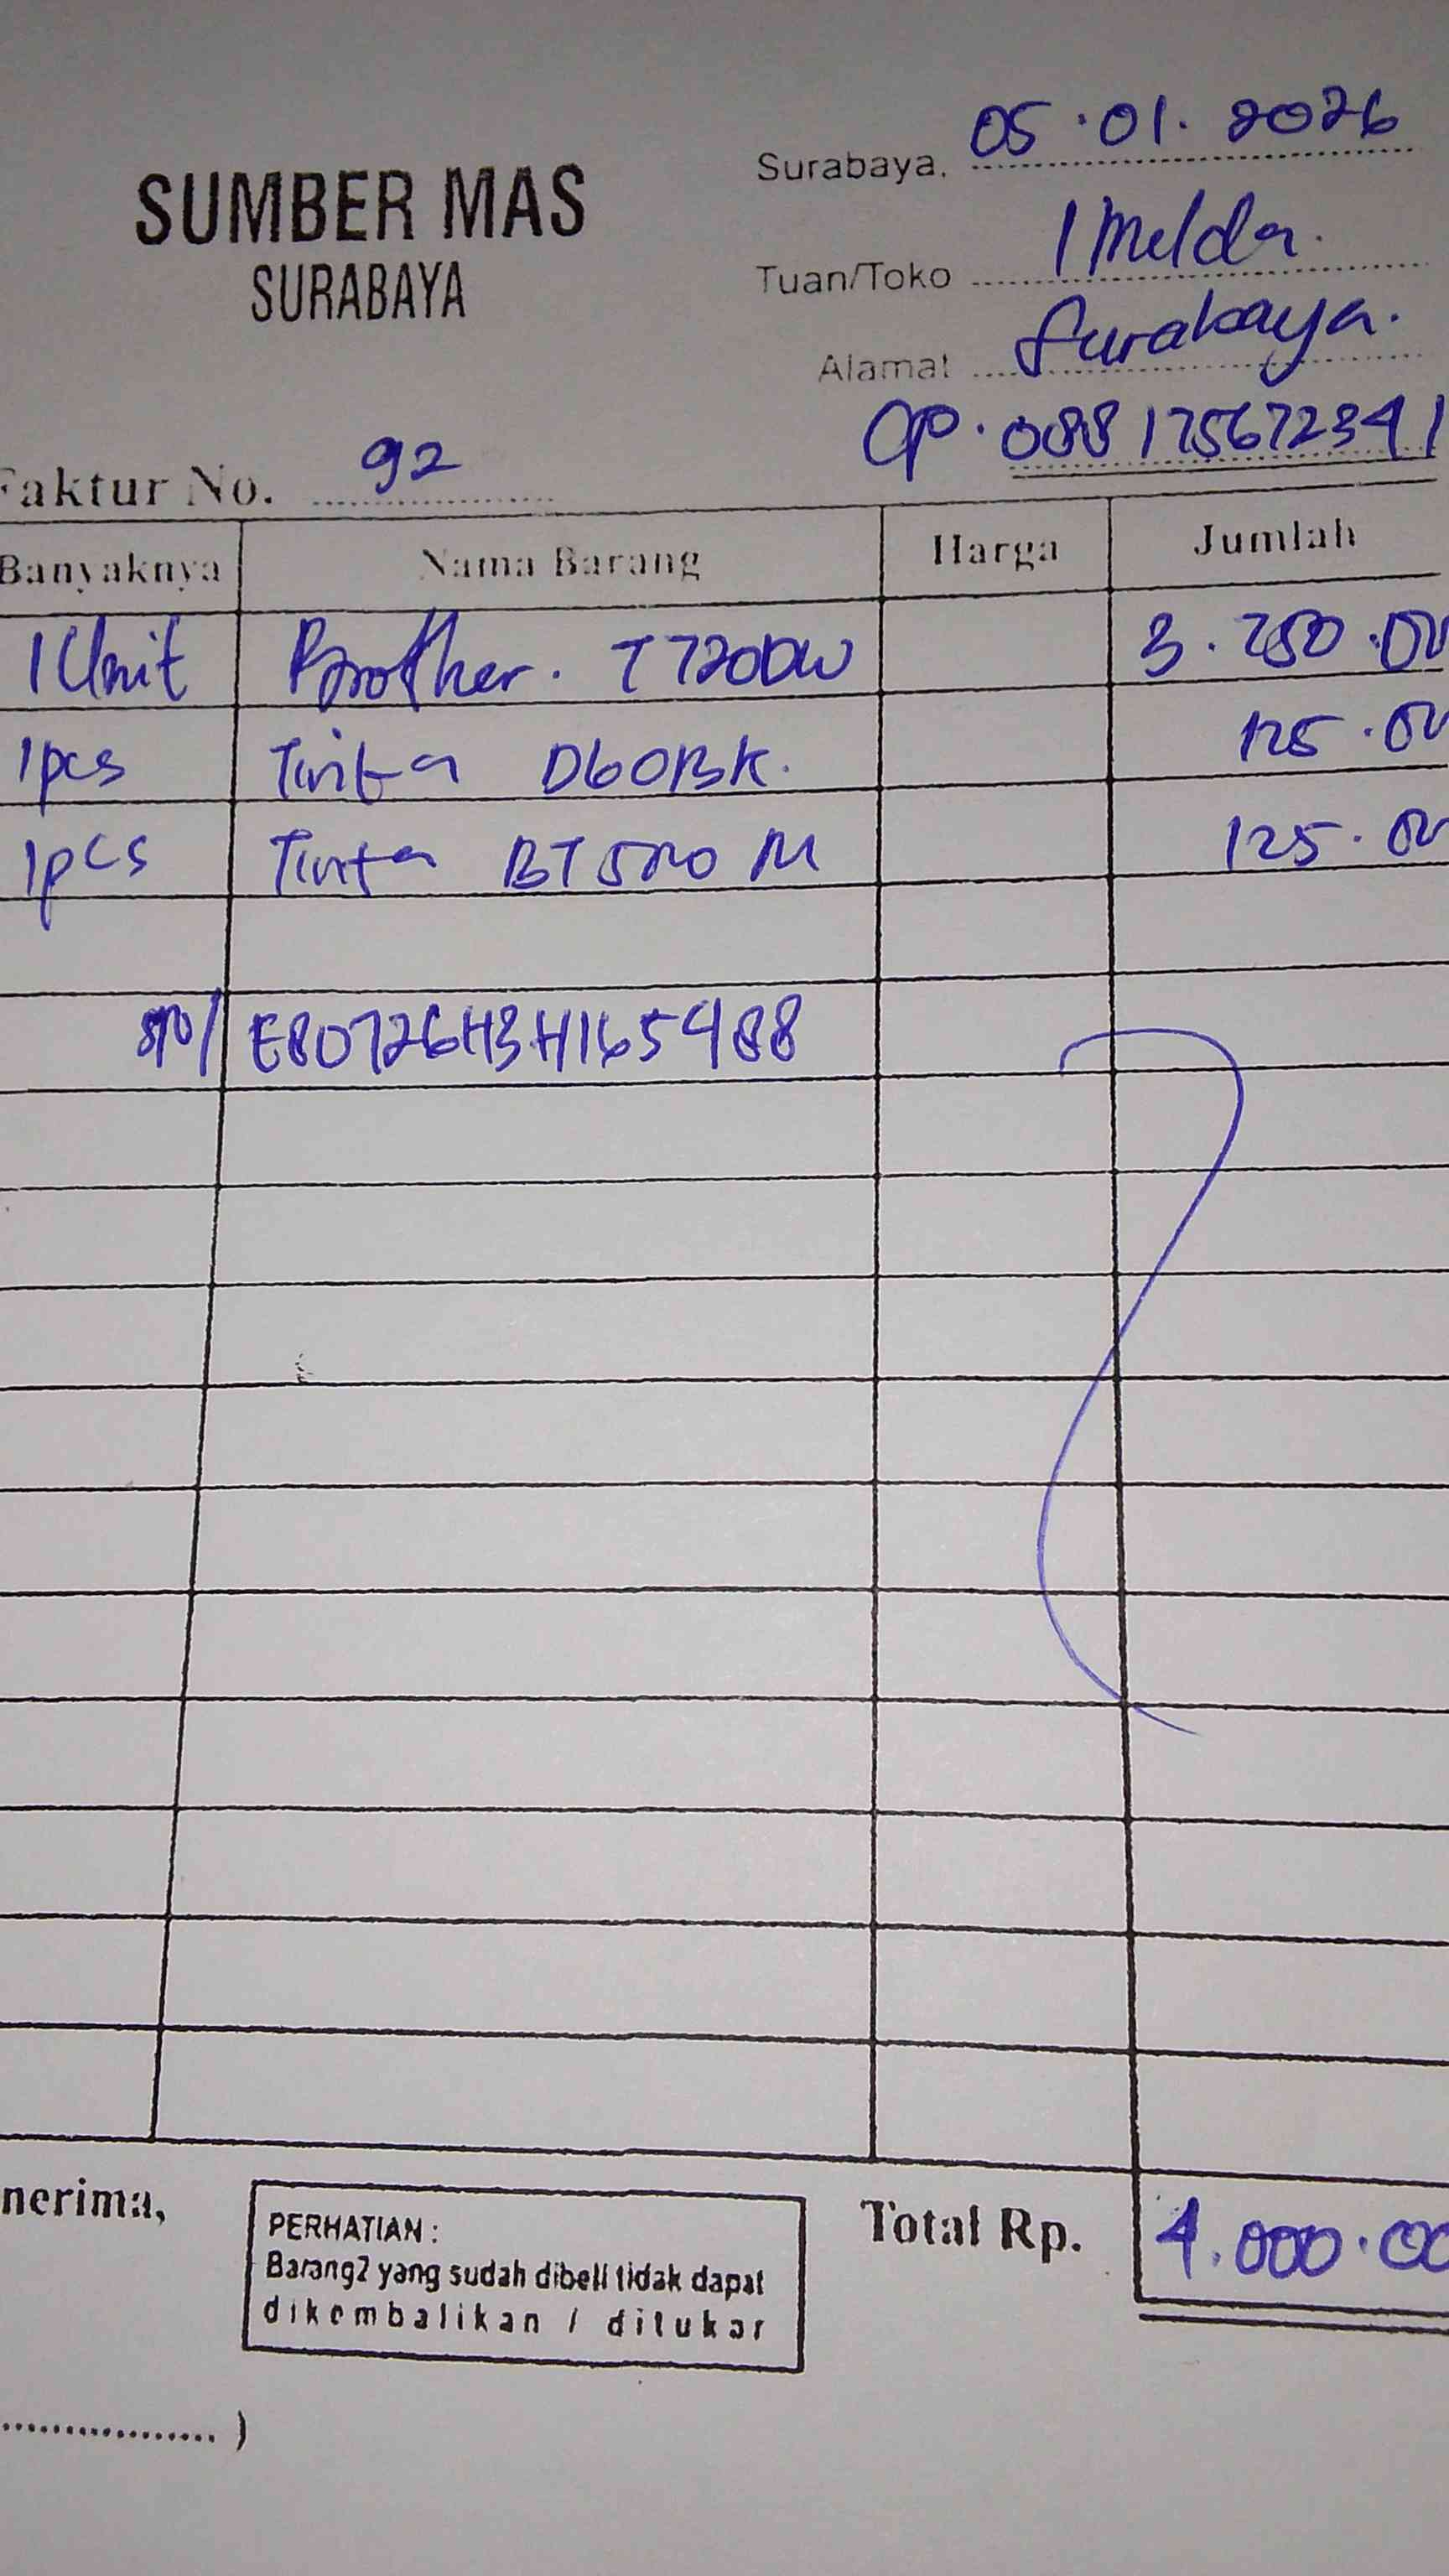 SUMBER MAS
SURABAYA
Surabaya, 05.01.2026
Tuan/Toko Imelda.
Alamat Surabaya.
CP. 088175672341
Faktur No. 92
Banyaknya Nama Barang Harga Jumlah
1 Unit Brother. T720DW 3.750.00
1pcs Tinta D60BK. 125.00
1pcs Tinta BT5000 M 125.00
SN/ E80726H3H165488
nerima,
PERHATIAN :
Barang2 yang sudah dibeli tidak dapat
dikembalikan / ditukar
Total Rp. 4.000.00
................. )